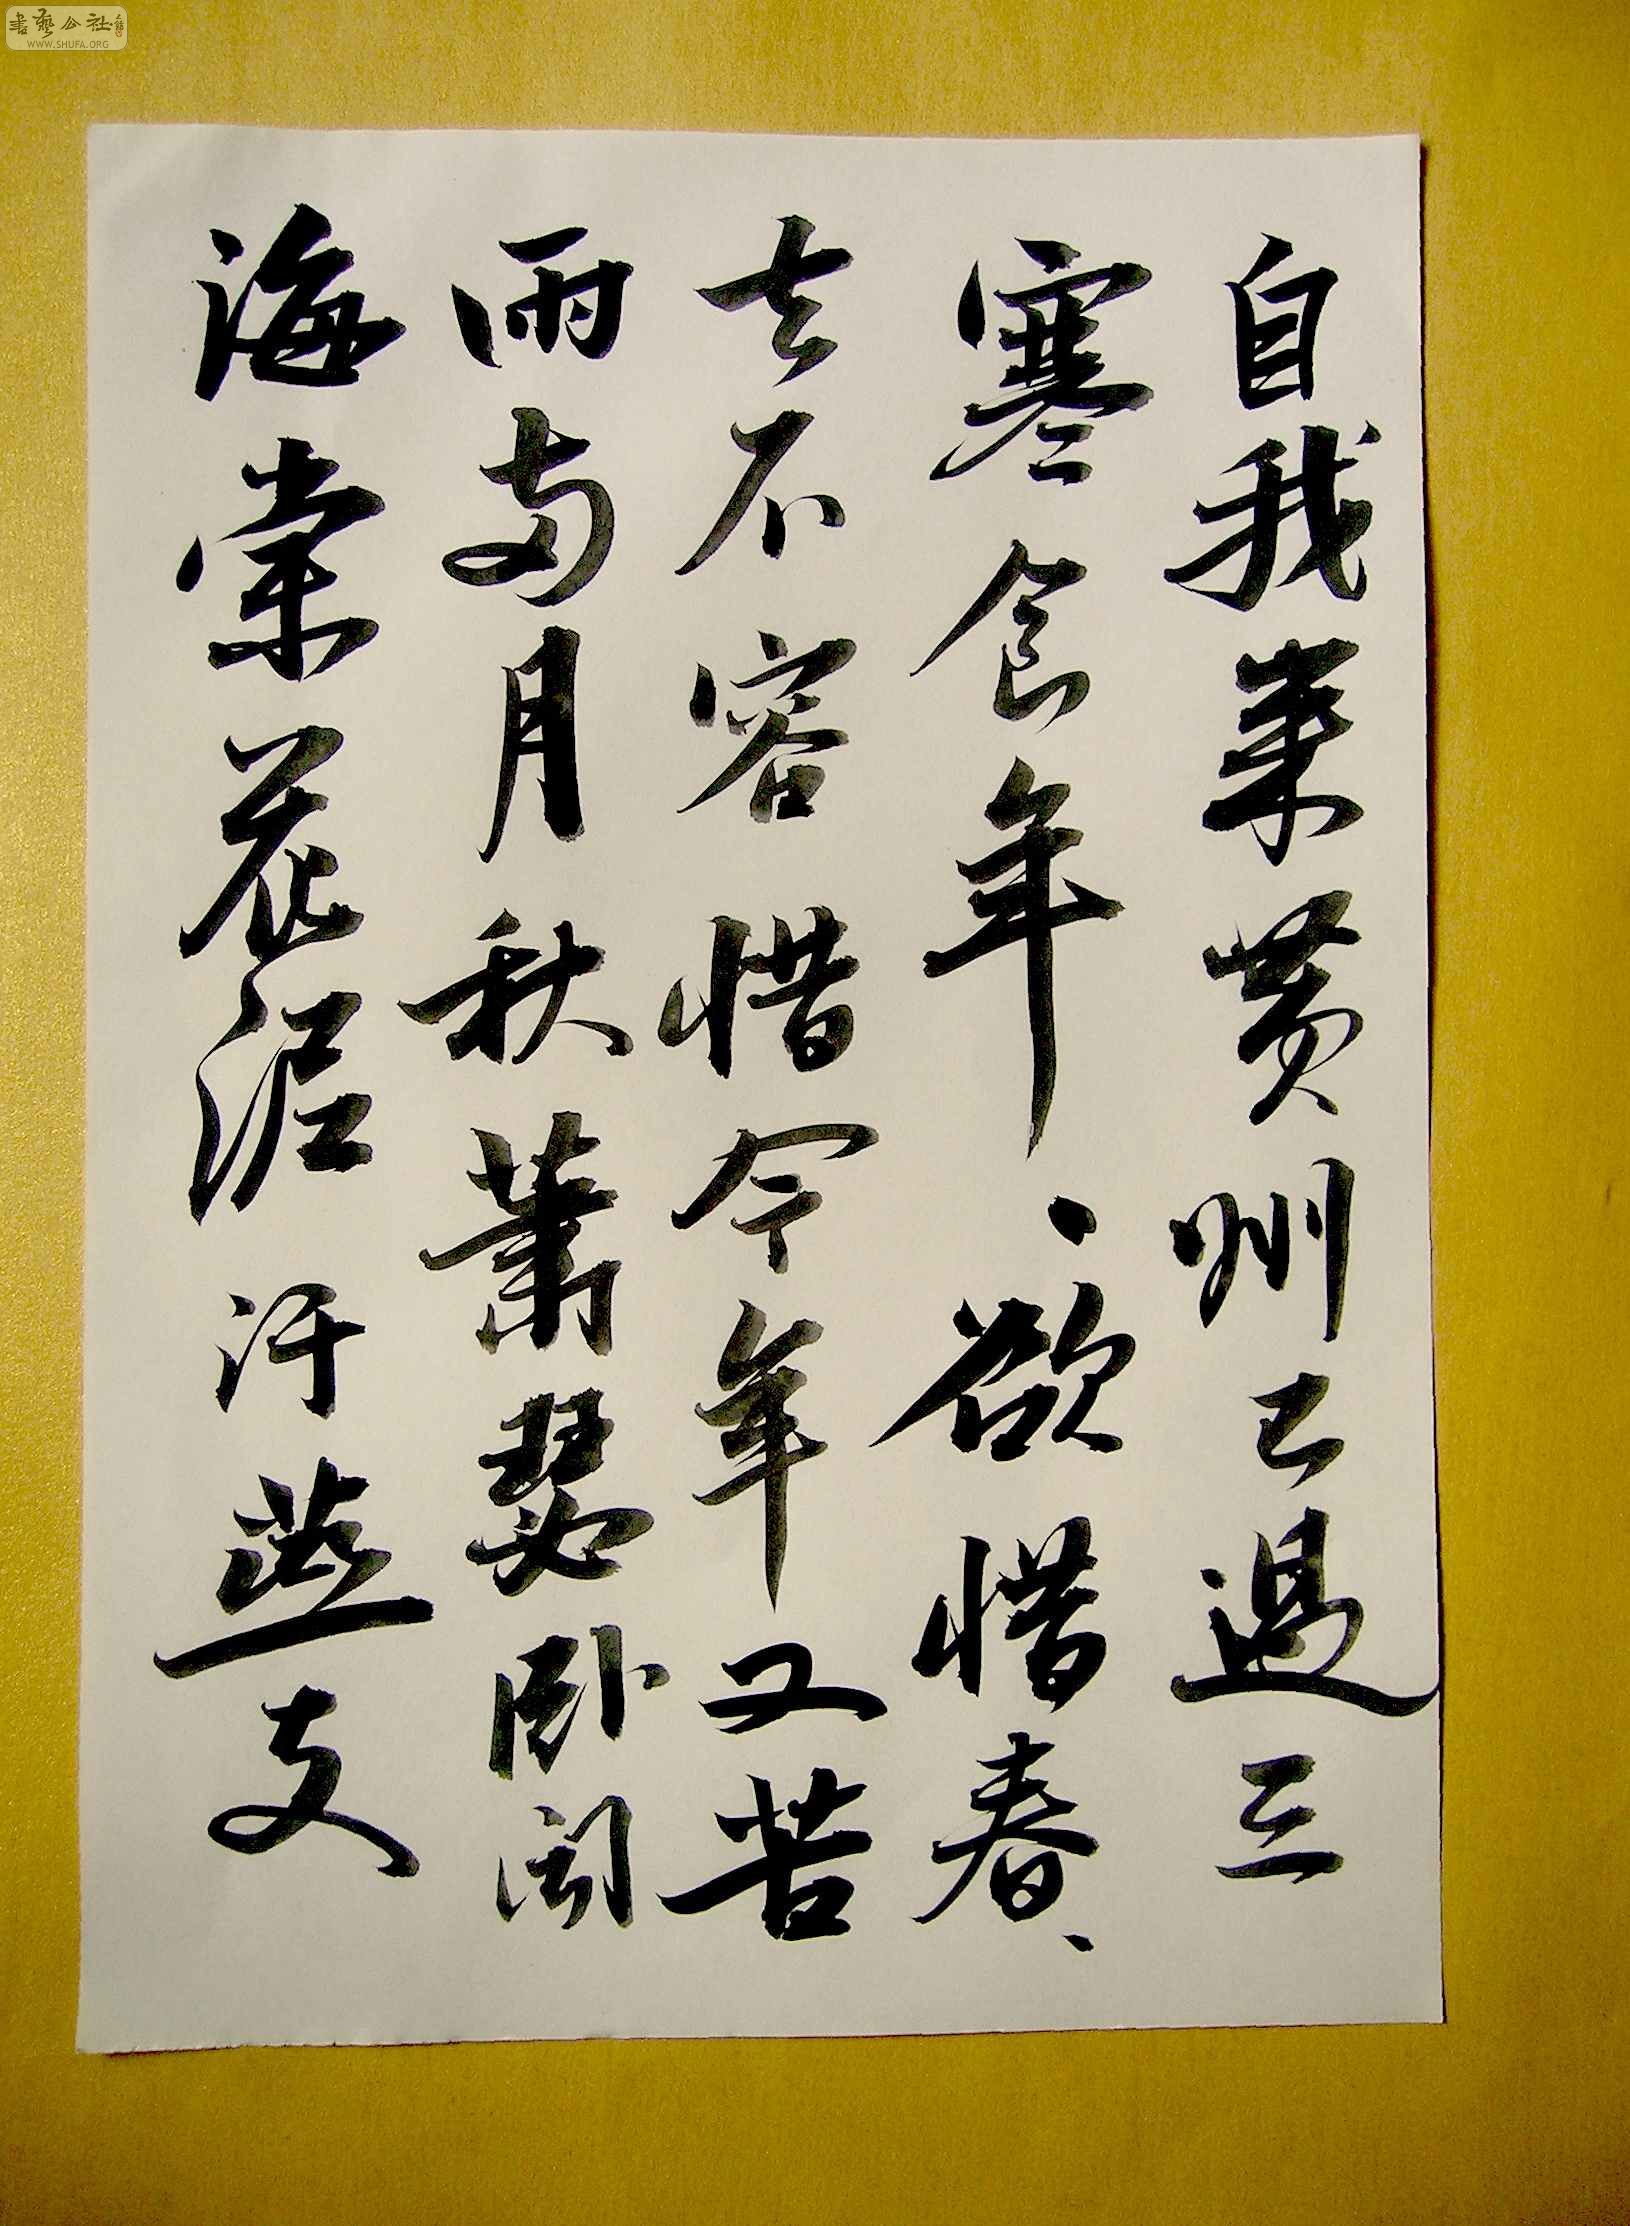 自我来黄州已過三
寒食年、欲惜春、
去不容惜今年又苦
雨兩月秋蕭瑟卧闻
海棠花泥汙燕支
書藝公社
WWW.SHUFA.ORG